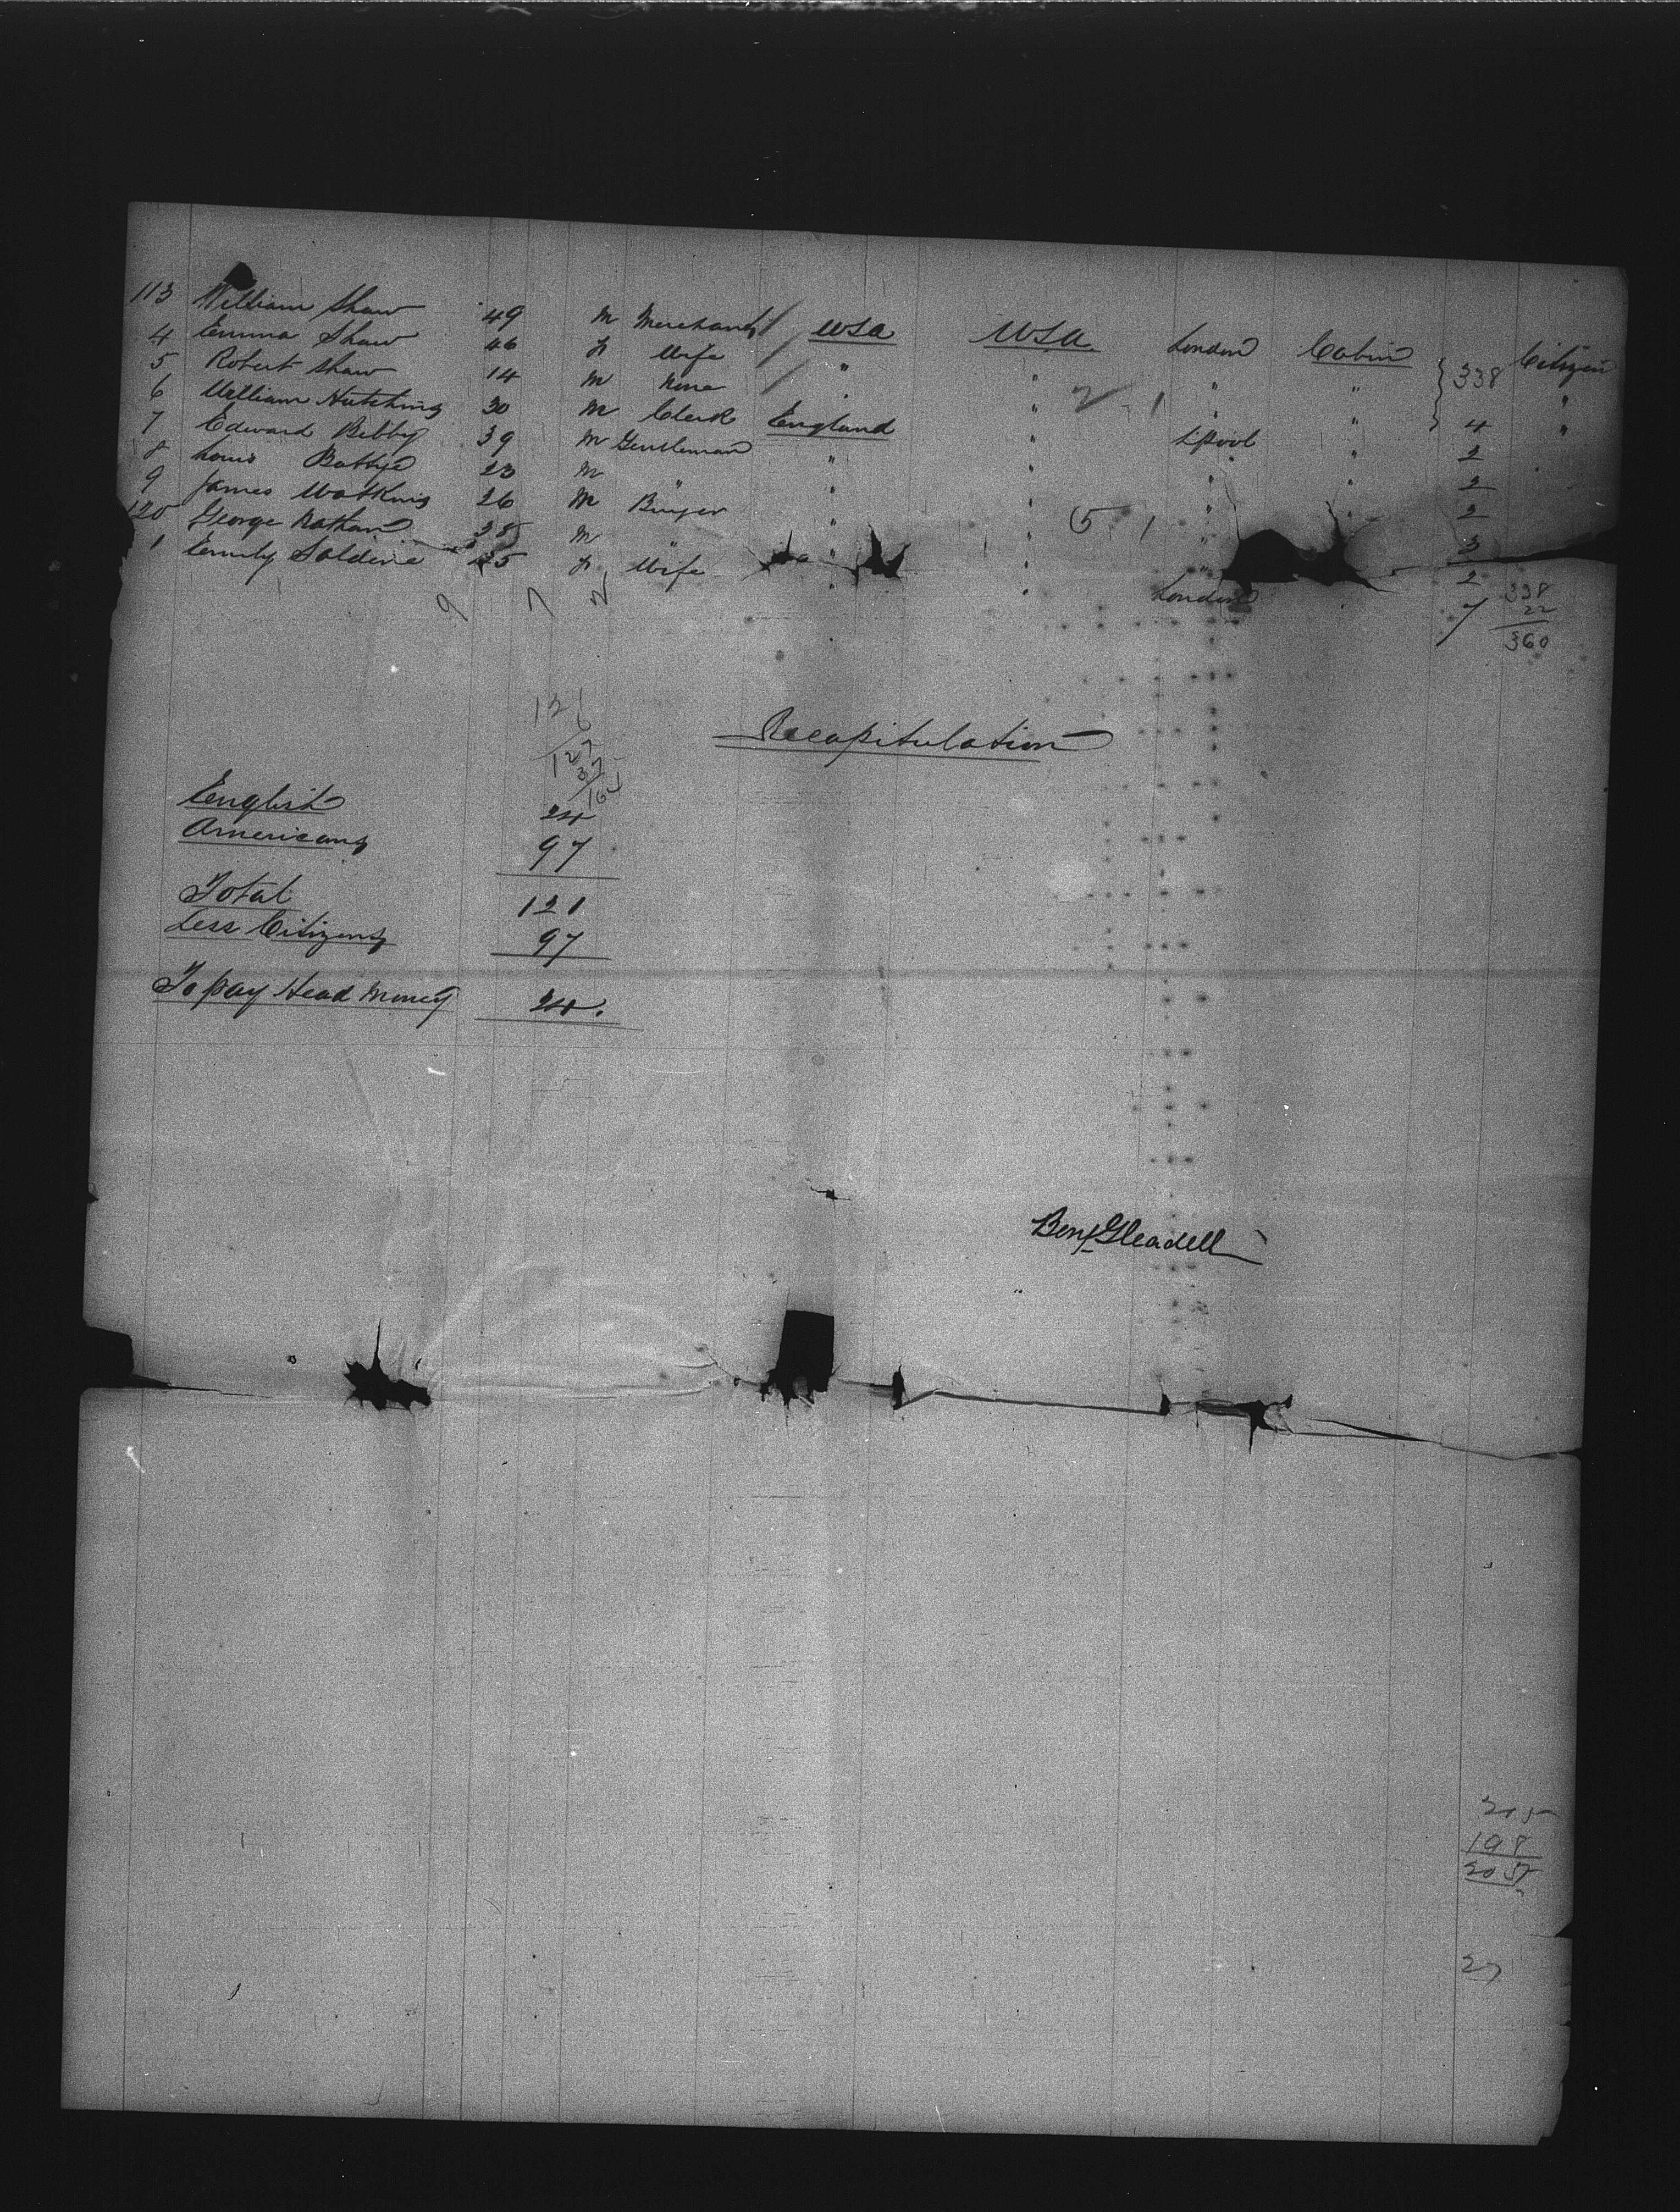 113 William Shaw 49 M Merchant USA USA London Cabin 338 Citizen
4 Emma Shaw 46 F Wife " " " " "
5 Robert Shaw 14 M None " " 2 1 " " "
6 William Hutching 30 M Clerk England " L'pool " 4
7 Edward Bibby 39 M Gentleman " " " " 2
8 Louis Battye 23 M " " " " " 2
9 James Watkins 26 M Buyer " " 5 1 " 2
120 George Nathan 38 M " " " " 3
1 Emily Soldene 35 F Wife " " London 2
9 7 2 7 338
22
360
126
127
37
164
Recapitulation
English 24
Americans 97
Total 121
Less Citizens 97
To pay Head Money 24.
Benj Gleadell
215
198
27